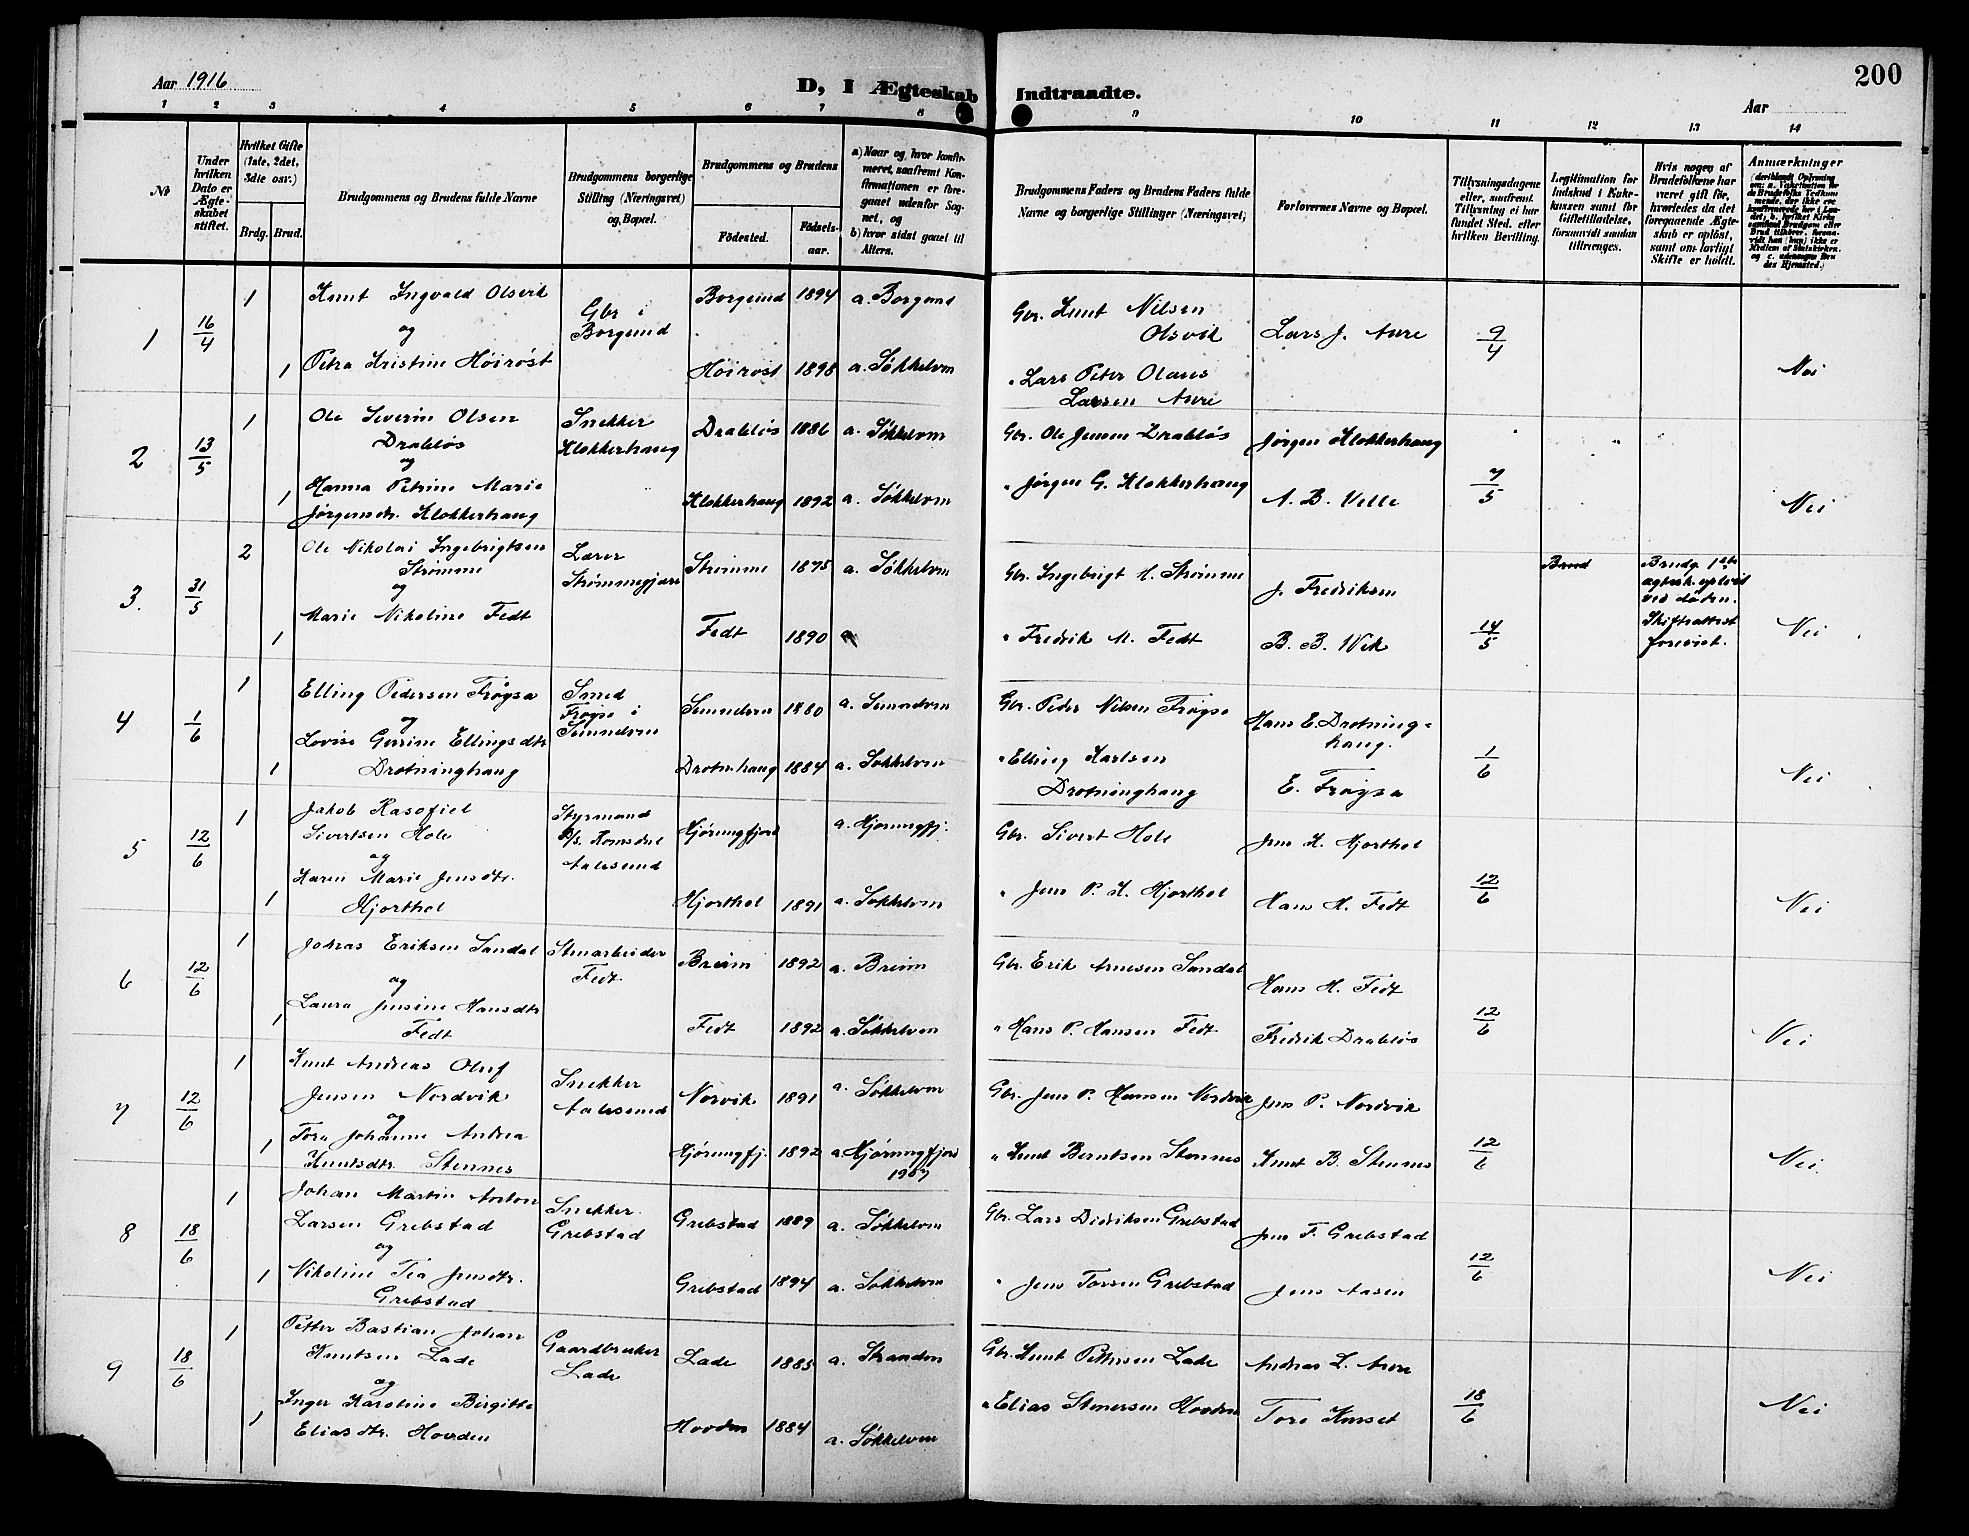 200
Aar 1916
D, I Ægteskab Indtraadte.
Aar
1 2 3 4 5 6 7 8 9 10 11 12 13 14
No
Under hvilken Dato er Ægteskabet stiftet.
Hvilket Gifte (1ste, 2det, 3die osv.)
Brdg. Brud.
Brudgommens og Brudens fulde Navne
Brudgommens borgerlige Stilling (Næringsvei) og Bopæl.
Brudgommens og Brudens
Födested.
Födselsaar.
a) Naar og hvor konfirmeret, saafremt Konfirmationen er foregaaet udenfor Sognet, og
b) hvor sidst gaaet til Alters.
Brudgommens Faders og Brudens Faders fulde Navne og borgerlige Stillinger (Næringsvei)
Forlovernes Navne og Bopæl.
Tillysningsdagene eller, saafremt Tillysning ei har fundet Sted, efter hvilken Bevilling.
Legitimation for Indskud i Enkekassen samt for Giftetilladelse, forsaavidt saadan tiltrænges.
Hvis nogen af Brudefolkene har været gift för, hvorledes da det foregaaende Ægteskab er oplöst, samt om lovligt Skifte er holdt.
Anmærkninger
1 16/4 1 Knut Ingvald Olsvik Gbr i Borgund Borgund 1894 a. Borgund Gbr. Knut Nilsen Olsvik Lars J. Aure 9/4
og
1 Petra Kristine Høirøst Høirøst 1898 a. Søkkelven " Lars Peter Olaus Larsen Aure Nei
2 13/5 1 Ole Severin Olsen Drabløs Snekker Klokkerhaug Drabløs 1886 a. Søkkelven Gbr. Ole Jensen Drabløs Jørgen Klokkerhaug
og
1 Hanna Petrine Marie Jørgensdtr. Klokkerhaug Klokkerhaug 1892 a. Søkkelven " Jørgen G. Klokkerhaug A. B. Velle 7/5 Nei
3. 31/5 2 Ole Nikolai Ingebrigtsen Strømme Lærer Strømmegjære Strømme 1875 a. Søkkelven Gbr. Ingebrigt H. Strømme J. Fredriksen Brud Brudg. 1ste ægtesk. opløst ved døden. Skifteattest forevist.
og
1 Marie Nikoline Fedt Fedt 1890 a " Fredrik M. Fedt B. B. Wik 14/5 Nei
4 1/6 1 Elling Pedersen Frøysa Smed Frøysa i Sunnelven Sunnelven 1880 a. Sunnelven Gbr. Peder Nilsen Frøysa Hans E. Drotninghaug.
og
1 Lovise Gurine Ellingsdtr Drotninghaug Drotn.haug 1884 a. Søkkelven " Elling Karlsen Drotninghaug E. Frøysa 1/6 Nei
5 12/6 1 Jakob Rasofiel Sivertsen Hole Styrmand D/s. Romsdal Aalesund Hjørungfjord a. Hjørungfj. Gbr. Sivert Hole Jens H. Hjorthol
og
1 Karen Marie Jensdtr. Hjorthol Hjorthol 1891 a. Søkkelven " Jens P. H. Hjorthol Hans H. Fedt 12/6 Nei
6 12/6 1 Johras Eriksen Sandal Stenarbeider Fedt Breim 1892 a. Breim Gbr. Erik Arnesen Sandal Hans H. Fedt
og
1 Laura Jensine Hansdtr Fedt Fedt 1892 a. Søkkelven " Hans P. Hansen Fedt Fredrik Drabløs 12/6 Nei
7 12/6 1 Knut Andreas Oluf Jensen Nordvik Snekker Aalesund Norvik 1891 a. Søkkelven Gbr. Jens P. Hansen Nordvik Jens P. Nordvik
og
1 Tora Johanne Andrea Knutsdtr. Stennes Hjørungfj. 1892 a. Hjørungfjord 1907 " Knut Berntsen Stennes Knut B. Stennes 12/6 Nei
8 18/6 1 Johan Martin Anton Larsen Grebstad Snekker Grebstad Grebstad 1889 a. Søkkelven Gbr. Lars Didriksen Grebstad Jens F. Grebstad
og
1 Nikoline Tia Jensdtr. Grebstad Grebstad 1894 a. Søkkelven " Jens Torsen Grebstad Jens Aasen 12/6 Nei
9 18/6 1 Petter Bastian Johan Knutsen Lade Gaardbruker Lade Lade 1885 a. Stranden Gbr. Knut Pettersen Lade Andreas L. Aure
og
1 Inger Karoline Birgitte Eliasdtr. Hovden Hovden 1884 a. Søkkelven " Elias Stenersen Hovden Tore Kurset 18/6 Nei